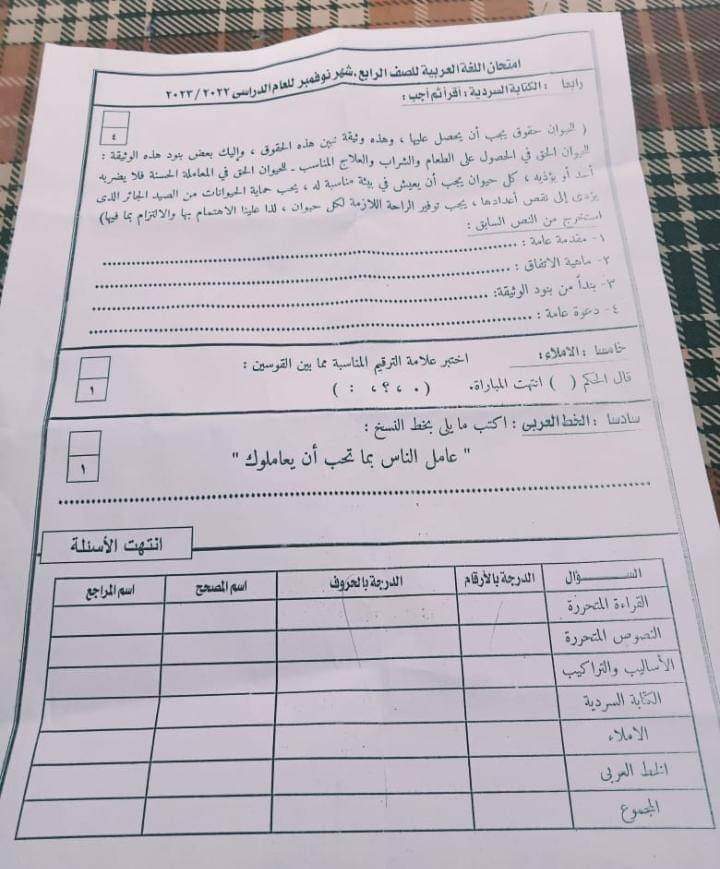 امتحان اللغة العربية للصف الرابع، شهر نوفمبر للعام الدراسى ٢٠٢٢ / ٢٠٢٣
رابعا : الكتابة السردية : أقرأ ثم أجب :
٤
( للحيوان حقوق يجب أن يحصل عليها ، وهذه وثيقة تبين هذه الحقوق ، وإليك بعض بنود هذه الوثيقة :
للحيوان الحق في الحصول على الطعام والشراب والعلاج المناسب - للحيوان الحق في المعاملة الحسنة فلا يضربه
أحد أو يؤذيه ، كل حيوان يجب أن يعيش في بيئة مناسبة له ، يجب حماية الحيوانات من الصيد الجائر الذى
يؤدى إلى نقص أعدادها ، يجب توفير الراحة اللازمة لكل حيوان ، لذا علينا الاهتمام بها والالتزام بما فيها)
استخرج من النص السابق :
١- مقدمة عامة :
٢- ماهية الاتفاق :
٣- بنداً من بنود الوثيقة:
٤- دعوة عامة :
خامسا : الاملاء : اختبر علامة الترقيم المناسبة مما بين القوسين :
قال الحكم ( ) انتهت المباراة. ( . ، ؟ ، : )
١
سادسا : الخط العربى : اكتب ما يلى بخط النسخ :
" عامل الناس بما تحب أن يعاملوك "
١
انتهت الأسئلة
الســـؤال الدرجة بالأرقام الدرجة بالحروف اسم المصحح اسم المراجع
القراءة المتحررة
النصوص المتحررة
الأساليب والتراكيب
الكتابة السردية
الاملاء
الخط العربى
المجموع